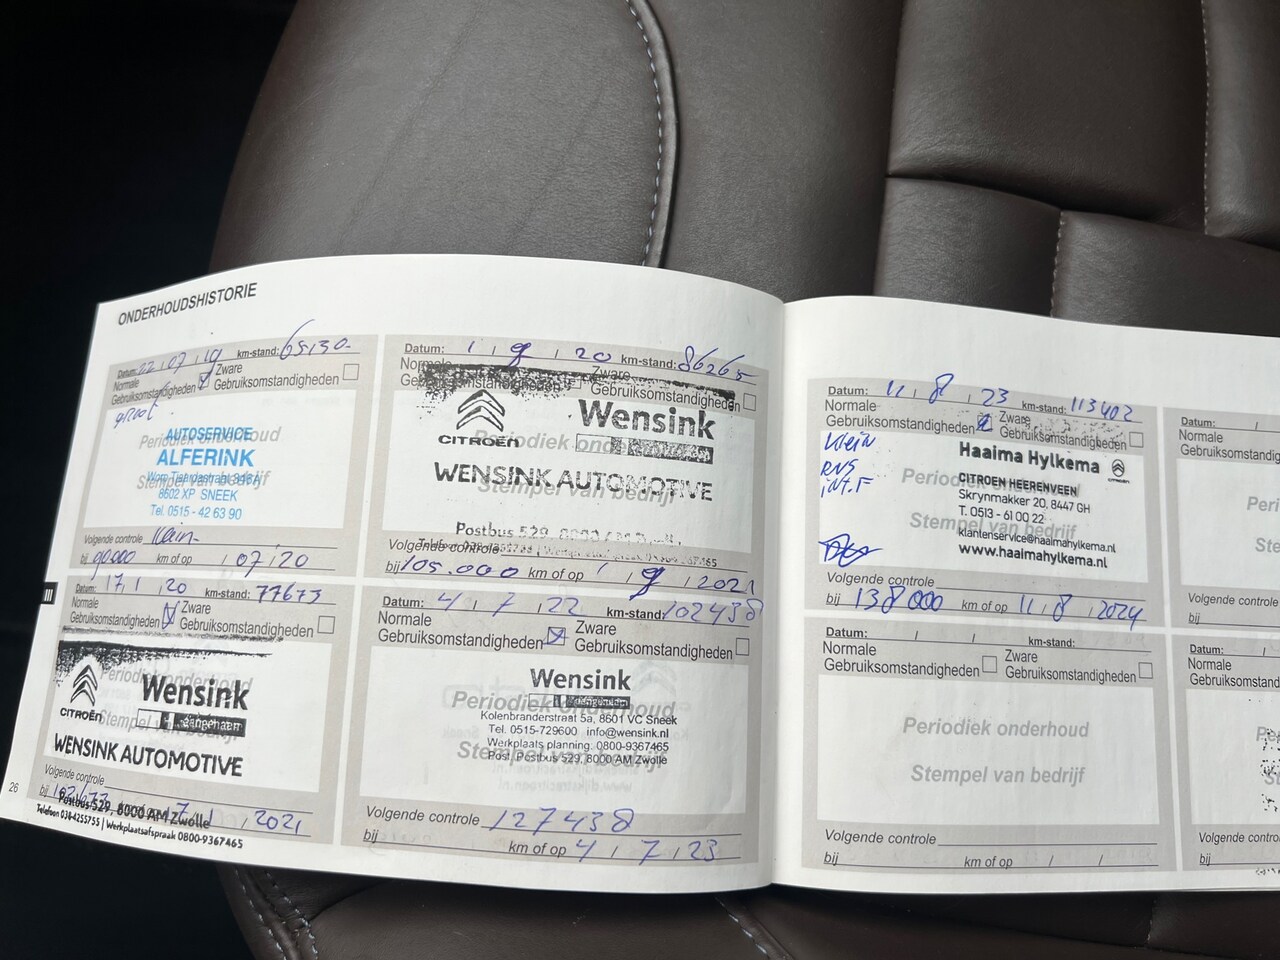 ONDERHOUDSHISTORIE
Datum: 22 / 07 / 19 km-stand: 65130-
Normale Zware
Gebruiksomstandigheden Gebruiksomstandigheden
groot
Periodiek onderhoud
Stempel van bedrijf
AUTOSERVICE
ALFERINK
8602 XP SNEEK
Tel. 0515 - 42 63 90
Volgende controle klein-
bij 90000 km of op / 07 / 20
Datum: 17 / 1 / 20 km-stand: 77673
Normale Zware
Gebruiksomstandigheden Gebruiksomstandigheden
Periodiek onderhoud
Stempel van bedrijf
CITROËN
Wensink
WENSINK AUTOMOTIVE
Volgende controle
bij 17 / 1 / 2021
Postbus 529, 8000 AM Zwolle
Telefoon 038-4255755 | Werkplaatsafspraak 0800-9367465
26
III
Datum: 1 / 9 / 20 km-stand: 86265
Normale Zware
Gebruiksomstandigheden Gebruiksomstandigheden
Periodiek onderhoud
Stempel van bedrijf
CITROËN
Wensink
WENSINK AUTOMOTIVE
Postbus 529, 8000
Volgende controle
bij 105.000 km of op 1 / 9 / 2021
Datum: 4 / 7 / 22 km-stand: 102438
Normale Zware
Gebruiksomstandigheden Gebruiksomstandigheden
Periodiek onderhoud
Stempel van bedrijf
Wensink
Kolenbranderstraat 5a, 8601 VC Sneek
Tel. 0515-729600 info@wensink.nl
Werkplaats planning. 0800-9367465
Post. Postbus 529, 8000 AM Zwolle
Volgende controle 127438
bij km of op 4 / 7 / 23
Datum: 11 / 8 / 23 km-stand: 113402
Normale Zware
Gebruiksomstandigheden Gebruiksomstandigheden
klein
RVS
int.F
Periodiek onderhoud
Stempel van bedrijf
Haaima Hylkema
CITROËN
CITROEN HEERENVEEN
Skrynmakker 20, 8447 GH
T. 0513 - 61 00 22
klantenservice@haaimahylkema.nl
www.haaimahylkema.nl
Volgende controle
bij 138000 km of op 11 / 8 / 2024
Datum: / / km-stand:
Normale Zware
Gebruiksomstandigheden Gebruiksomstandigheden
Periodiek onderhoud
Stempel van bedrijf
Volgende controle
bij km of op / /
Datum: /
Normale
Gebruiksomstandigheden
Volgende controle
bij
Datum: /
Normale
Gebruiksomstandigheden
Volgende controle
bij